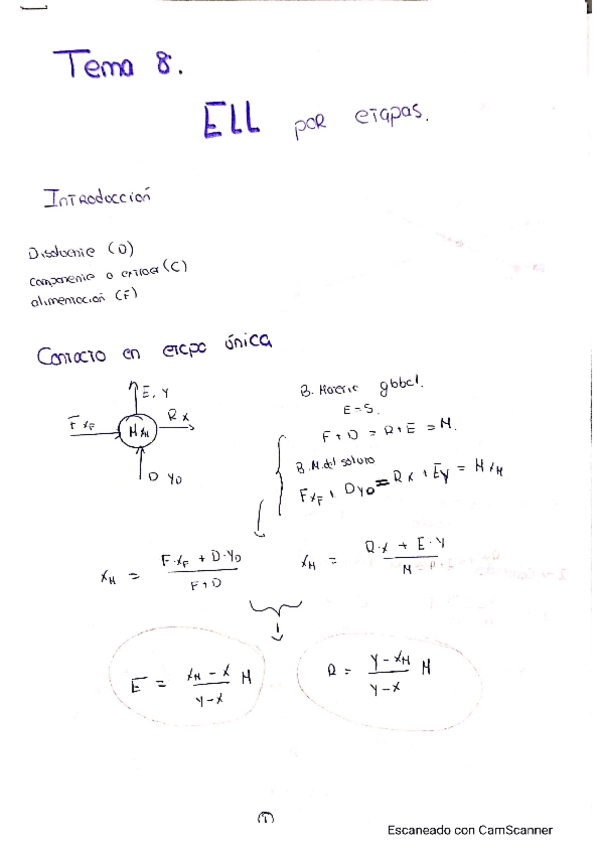 Tema 8.
ELL por etapas.
Introducción
Disolvente (D)
componente a extraer (C)
alimentación (F)
Contacto en etapa única
E, Y
F x_F
M x_M
R x
D Y_D
B. Materia global.
E = S.
F + D = R + E = M.
B. M. del soluto
F x_F + D y_D = R x + E y = M x_M
x_M = (F·x_F + D·Y_D) / (F + D)
x_M = (R·x + E·Y) / M
E = (x_M - x) / (y - x) M
R = (y - x_M) / (y - x) M
1
Escaneado con CamScanner